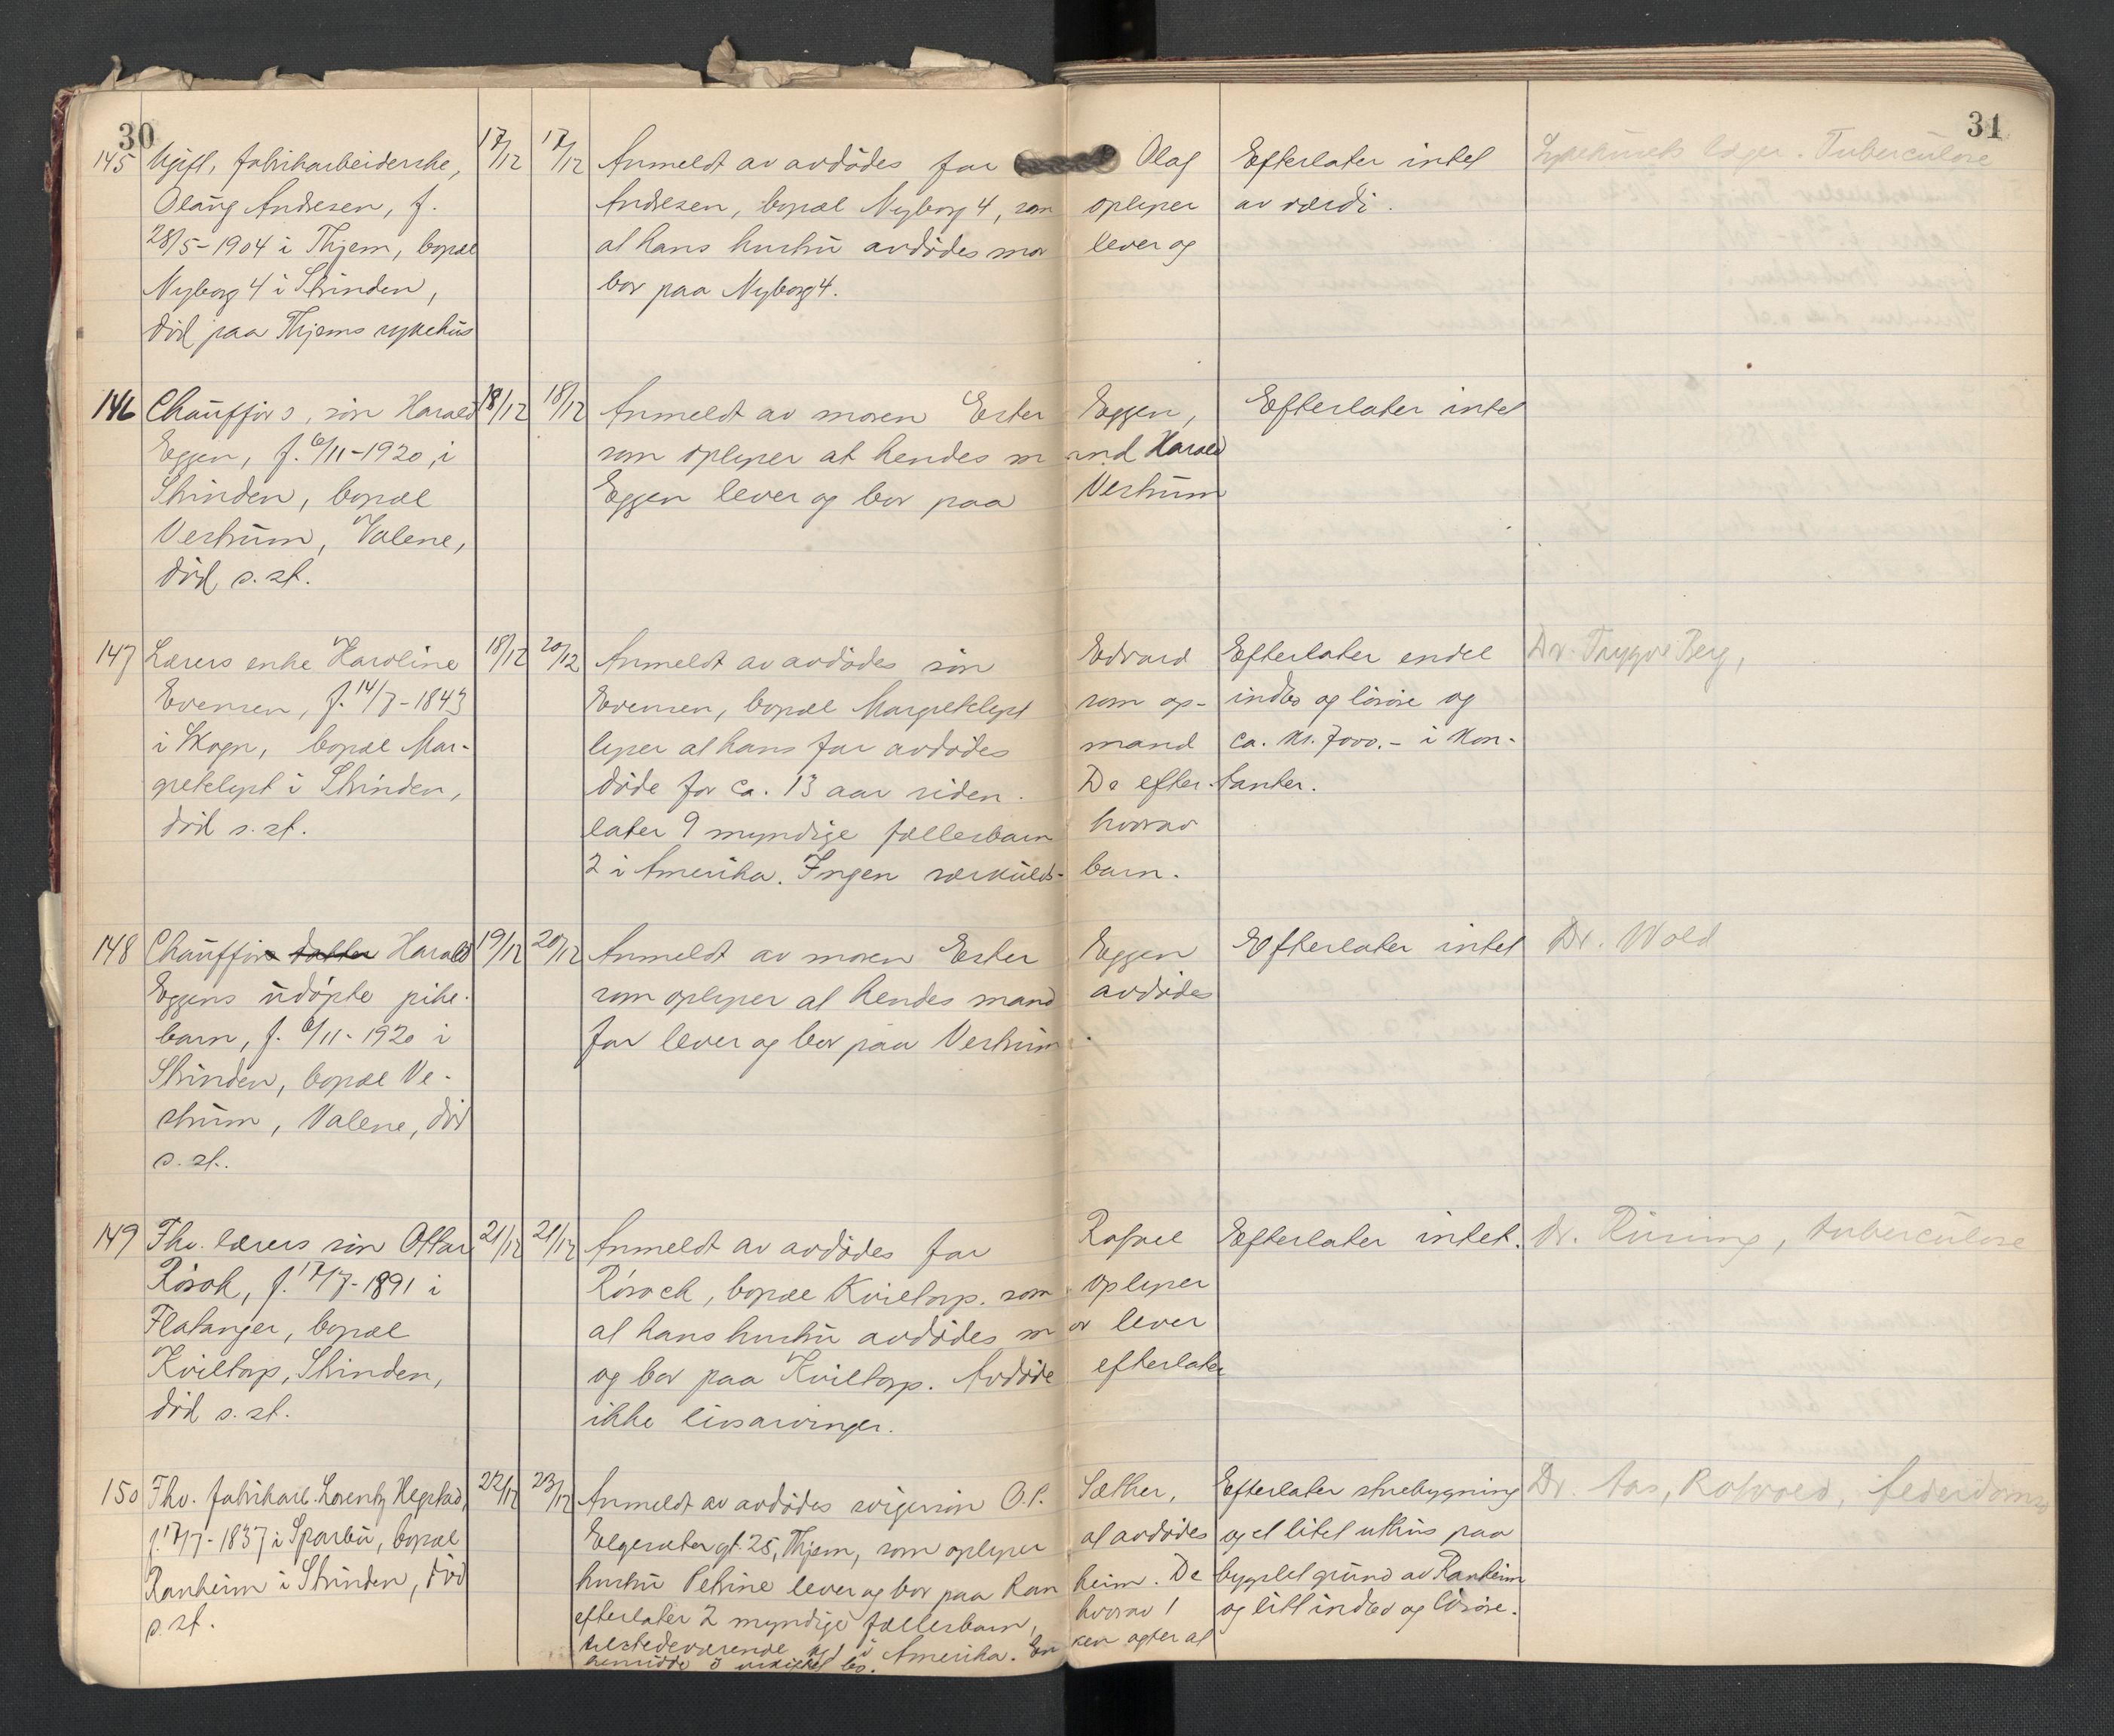 30
31
145 Ugift, fabrikarbeiderske, 17/12 17/12 Anmeldt av avdødes far Olaf Efterlater intet Sykehusets læger. Tuberculose
Olaug Andresen, f. Andresen, bopæl Nyborg 4, som oplyser av værdi.
28/5-1904 i Thjem, bopæl at hans hustru avdødes mor lever og
Nyborg 4 i Strinden, bor paa Nyborg 4.
död paa Thjems sykehus
146 Chauffør s, søn Harald 18/12 18/12 Anmeldt av moren Ester Eggen, Efterlater intet
Eggen, f. 6/11-1920, i som oplyser at hendes mand Harald
Strinden, bopæl Eggen lever og bor paa Vestum
Vestum, Valene,
död s. st.
147 Lærers enke Karoline 18/12 20/12 Anmeldt av avdødes søn Edvard Efterlater endel Dr. Trygve Berg,
Evensen, f. 14/7-1843 Evensen, bopæl Margretelyst som op- indbo og løsøre og
i Skogn, bopæl Mar- lyser at hans far avdødes mand ca. kr. 7000.- i kon-
gretelyst i Strinden, døde for ca. 13 aar siden. De efter- tanter.
död s. st. later 9 myndige fællesbarn hvorav
2 i Amerika. Ingen særkulds- barn.
148 Chauffør datter Harald 19/12 20/12 Anmeldt av moren Ester Eggen Efterlater intet Dr. Wold
Eggens udøpte pike- som oplyser at hendes mand avdødes
barn, f. 6/11-1920 i far lever og bor paa Vestum.
Strinden, bopæl Ve-
stum, Valene, död
s. st.
149 Fhv. lærers søn Ottar 21/12 21/12 Anmeldt av avdødes far Rafael Efterlater intet. Dr. Rising, tuberculose
Rösok, f. 17/7-1891 i Rösock, bopæl Kviltorp. som oplyser
Flatanger, bopæl at hans hustru avdødes mor lever
Kviltorp, Strinden, og bor paa Kviltorp. Avdøde efterlater
död s. st. ikke livsarvinger.
150 Fhv. fabrikarb. Lorentz Hegstad, 22/12 23/12 Anmeldt av avdødes svigersøn O.P. Sæther, Efterlater stuebygning Dr. Aas, Rotvold, alderdoms
f. 17/7-1837 i Sparbu, bopæl Elgesætergt. 25, Thjem, som oplyser at avdødes og et litet uthus paa
Ranheim i Strinden, död hustru Petrine lever og bor paa Ranheim. De bygslet grund av Ranheim
s. st. efterlater 2 myndige fællesbarn, hvorav 1 og litt indbo og løsøre.
tilstedeværende og 1 i Amerika. Enken agter at
hensidde i uskiftet bo.